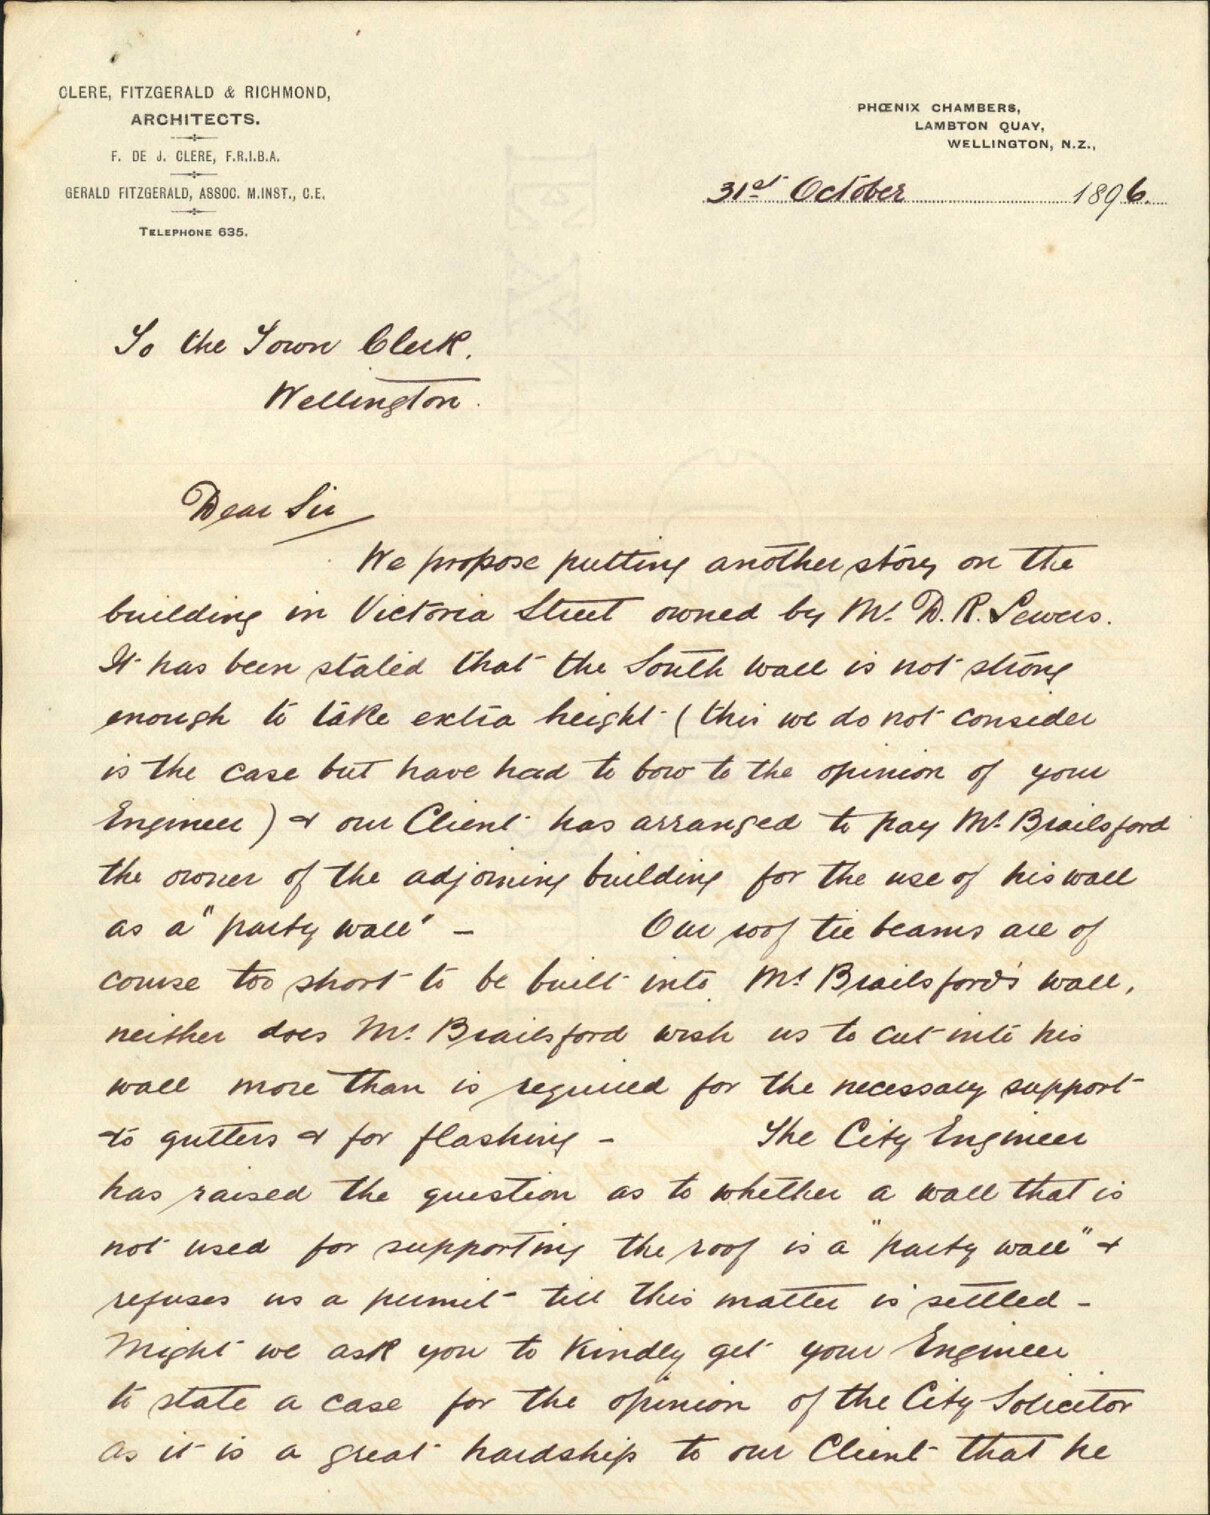 CLERE, FITZGERALD & RICHMOND,
ARCHITECTS.
F. DE J. CLERE, F.R.I.B.A.
GERALD FITZGERALD, ASSOC. M.INST., C.E.
TELEPHONE 635.
PHŒNIX CHAMBERS,
LAMBTON QUAY,
WELLINGTON, N.Z.,
31st October 1896.
To the Town Clerk.
Wellington.
Dear Sir
We propose putting another story on the
building in Victoria Street owned by Mr. D. R. Lewers.
It has been stated that the South wall is not strong
enough to take extra height (this we do not consider
is the case but have had to bow to the opinion of your
Engineer) & our Client has arranged to pay Mr. Brailsford
the owner of the adjoining building for the use of his wall
as a "party wall" - Our roof tie beams are of
course too short to be built into Mr Brailsford's wall,
neither does Mr. Brailsford wish us to cut into his
wall more than is required for the necessary support
to gutters & for flashing - The City Engineer
has raised the question as to whether a wall that is
not used for supporting the roof is a "party wall" &
refuses us a permit till this matter is settled -
Might we ask you to kindly get your Engineer
to state a case for the opinion of the City Solicitor
as it is a great hardship to our Client that he